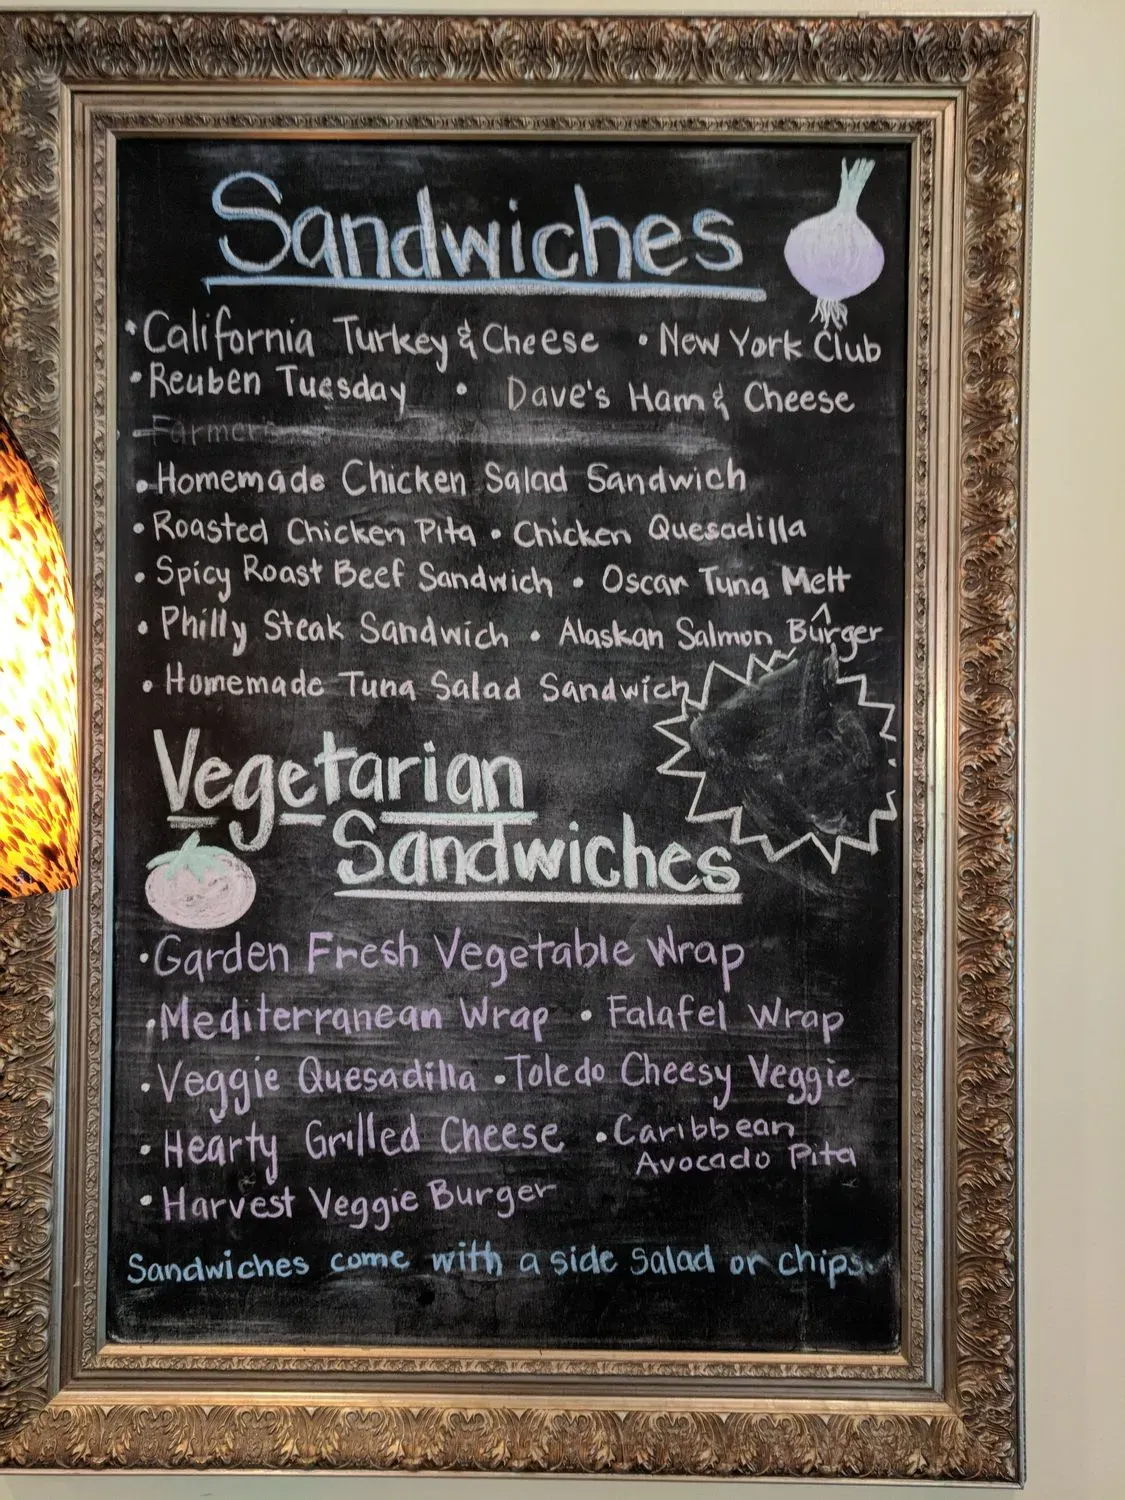 Sandwiches
• California Turkey & Cheese • New York Club
• Reuben Tuesday • Dave's Ham & Cheese
Farmers
• Homemade Chicken Salad Sandwich
• Roasted Chicken Pita • Chicken Quesadilla
• Spicy Roast Beef Sandwich • Oscar Tuna Melt
• Philly Steak Sandwich • Alaskan Salmon Burger
• Homemade Tuna Salad Sandwich
Vegetarian
Sandwiches
• Garden Fresh Vegetable Wrap
• Mediterranean Wrap • Falafel Wrap
• Veggie Quesadilla • Toledo Cheesy Veggie
• Hearty Grilled Cheese • Caribbean
Avocado Pita
• Harvest Veggie Burger
Sandwiches come with a side salad or chips.